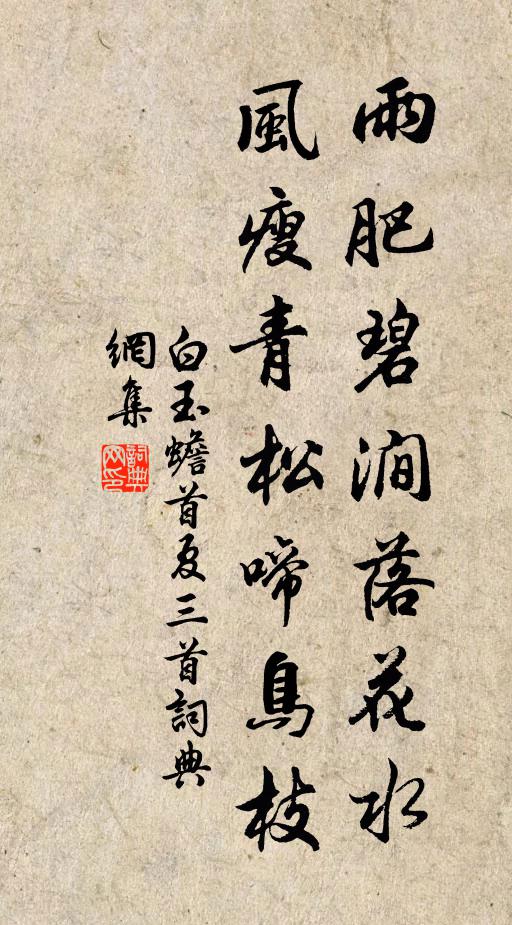 雨肥碧澗落花水
風瘦青松啼鳥枝
白玉蟾首夏三首詞典
網集
詞典
网印